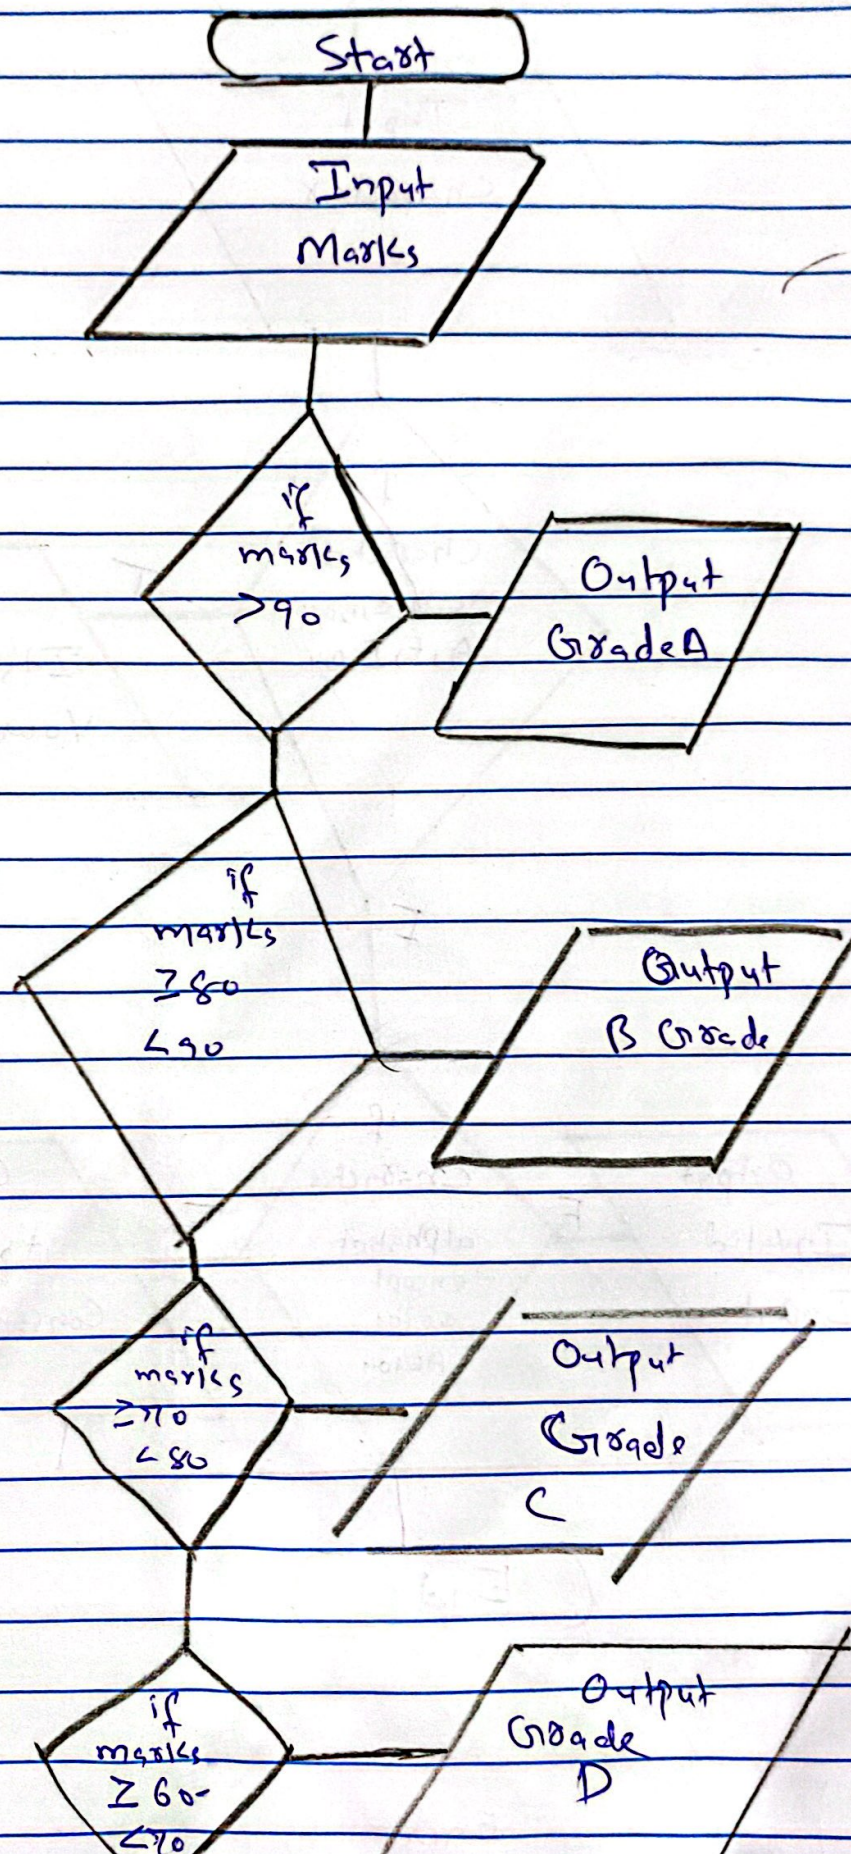 Start
Input
Marks
if
marks
>90
Output
Grade A
if
marks
≥80
<90
Output
B Grade
if
marks
≥70
<80
Output
Grade
C
if
marks
≥60
<70
Output
Grade
D